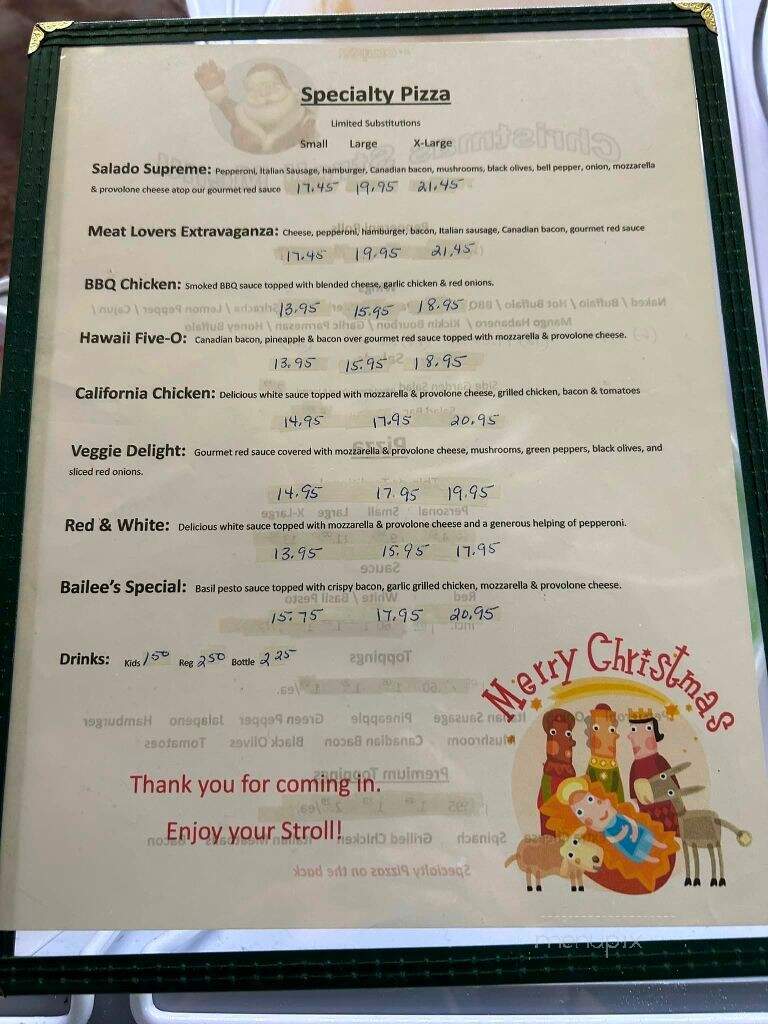 Specialty Pizza
Limited Substitutions
Small Large X-Large
Salado Supreme: Pepperoni, Italian Sausage, hamburger, Canadian bacon, mushrooms, black olives, bell pepper, onion, mozzarella
& provolone cheese atop our gourmet red sauce 17.45 19.95 21.45
Meat Lovers Extravaganza: Cheese, pepperoni, hamburger, bacon, Italian sausage, Canadian bacon, gourmet red sauce
17.45 19.95 21.45
BBQ Chicken: Smoked BBQ sauce topped with blended cheese, garlic chicken & red onions.
13.95 15.95 18.95
Hawaii Five-O: Canadian bacon, pineapple & bacon over gourmet red sauce topped with mozzarella & provolone cheese.
13.95 15.95 18.95
California Chicken: Delicious white sauce topped with mozzarella & provolone cheese, grilled chicken, bacon & tomatoes
14.95 17.95 20.95
Veggie Delight: Gourmet red sauce covered with mozzarella & provolone cheese, mushrooms, green peppers, black olives, and
sliced red onions.
14.95 17.95 19.95
Red & White: Delicious white sauce topped with mozzarella & provolone cheese and a generous helping of pepperoni.
13.95 15.95 17.95
Bailee's Special: Basil pesto sauce topped with crispy bacon, garlic grilled chicken, mozzarella & provolone cheese.
15.75 17.95 20.95
Drinks: Kids 1 50 Reg 2 50 Bottle 2 25
Merry Christmas
Thank you for coming in.
Enjoy your Stroll!
menupix